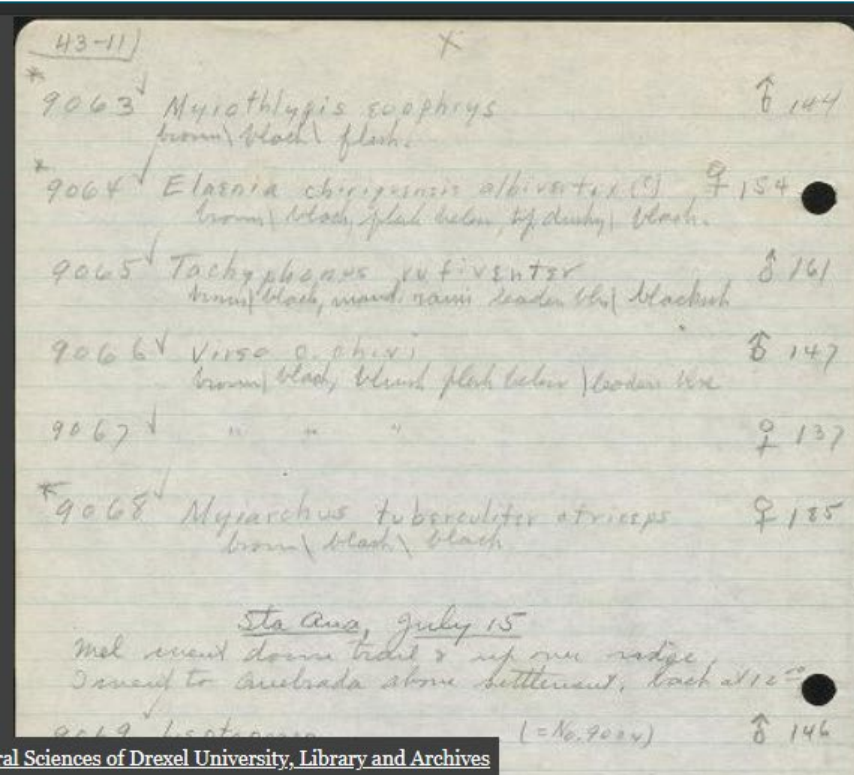 43-11) X
* 9063 ✓ Myiothlypis euophrys ♂ 144
brown \ black \ flesh.
* 9064 ✓ Elaenia chiriquensis albivertex (?) ♀ 154
brown | black, flesh below, tip dusky | black.
9065 ✓ Tachyphonus rufiventer ♂ 161
brown | black, mand. rami leaden blue | blackish
9066 ✓ Vireo o. chivi ♂ 147
brown | black, bluish flesh below | leaden blue
9067 ✓ " " " ♀ 137
* 9068 ✓ Myiarchus tuberculifer atriceps ♀ 185
brown \ black \ black
Sta Ana, July 15
Mel went down trail & up over ridge.
I went to Quebrada above settlement, back at 12
9069 ✓ Leptopogon (=No. 9024) ♂ 146
ral Sciences of Drexel University, Library and Archives